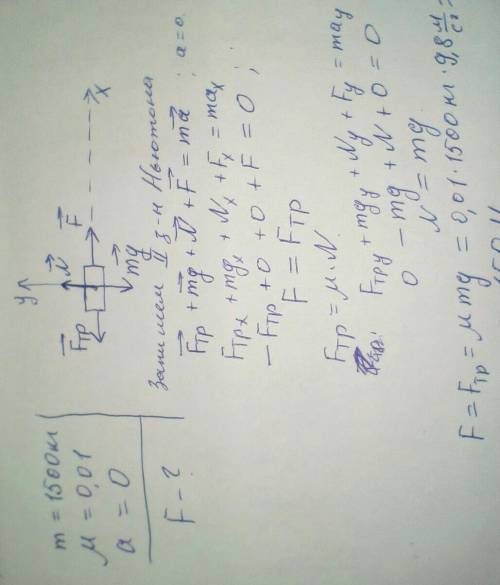 m = 1500кг
μ = 0,01
a = 0
F - ?
y
N⃗
F⃗тр
F⃗
X
mg⃗
Запишем II з-н Ньютона
F⃗тр + mg⃗ + N⃗ + F⃗ = ma⃗ ; a=0.
Fтрx + mgx + Nx + Fx = max
-Fтр + 0 + 0 + F = 0 ;
F = Fтр
Fтр = μ·N
Fтрy + mgy + Ny + Fy = may
0 - mg + N + 0 = 0
N = mg
F = Fтр = μmg = 0,01·1500кг·9,8 м/с² =